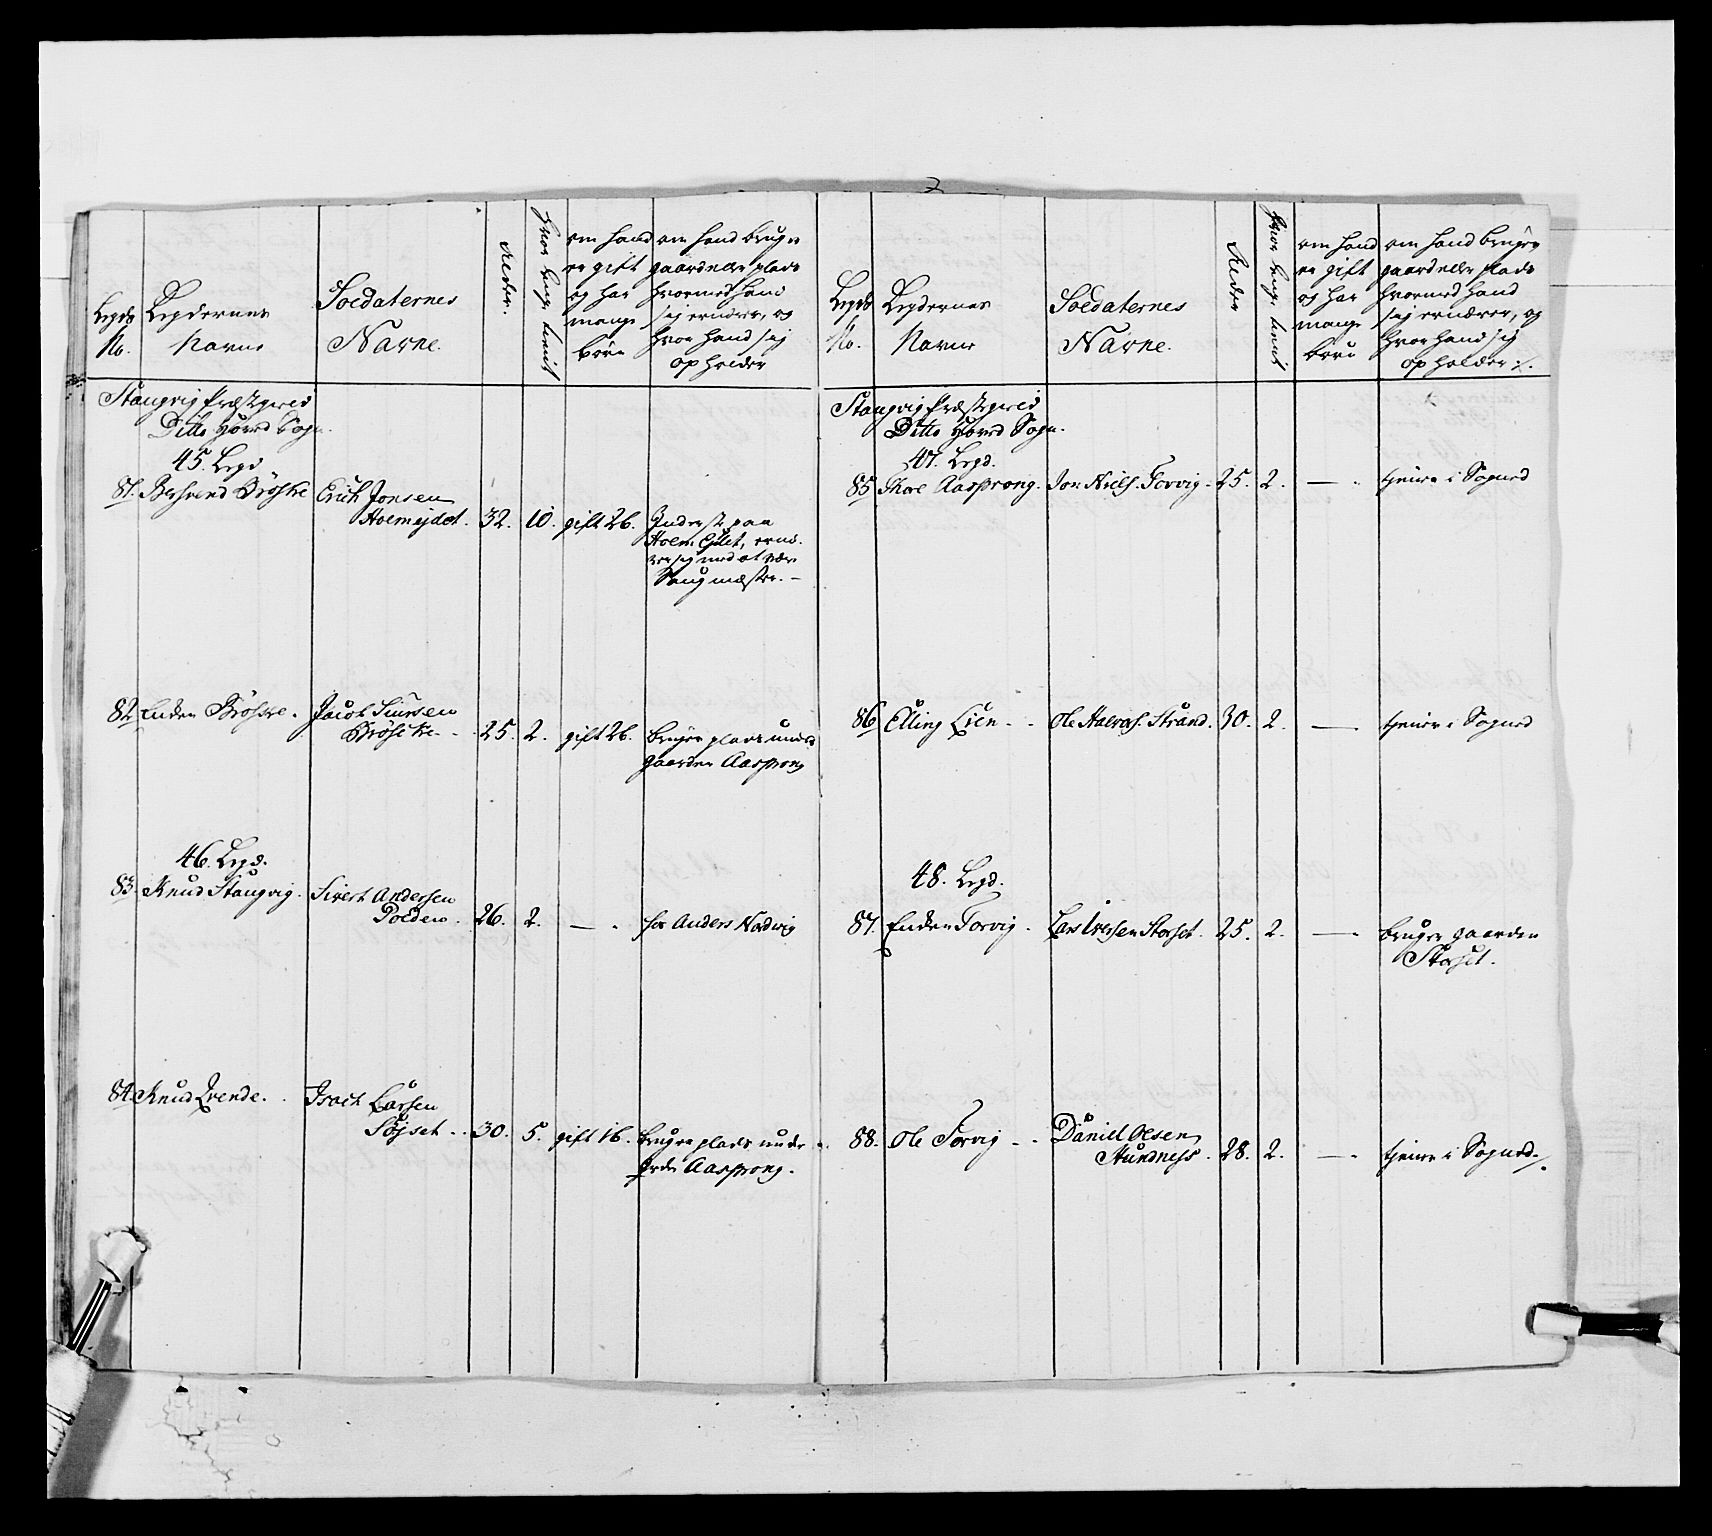 Legds
No.
Legdernes
Navne
Soldaternes
Navne.
Alder.
hvor lenge tient
om hand
er gift
og har
mange
børn
om hand bruger
gaard eller plads
hvormed hand
sig ernærer, og
hvor hand sig
opholder
Stangvig Præstegield
Ditto Hoved Sogn.
45. Legd
81. Erich Jonsen
Holmejdet. 32. 10. gift 2b. Inderst paa
Holm Ejdet, ernæ-
rer sig med at være
Saugmæster. –
82. Enden Brøske. Jacob Siursen
Brøske - - 25. 2. gift 2b. bruger plads under
gaarden Aasprong
46. Legd.
83. Knud Stangvig. Sivert Andersen
Polden. 26. 2. — . hos Anders Nordvig
84. Knud Qvende. . Isach Larsen
Søyset . . 30. 5. gift 1b. bruger plads under
Aasprong.
Legds
No.
Legdernes
Navne
Soldaternes
Navne.
Alder
hvor lenge tient
om hand
er gift
og har
mange
børn
om hand bruger
gaard eller plads
hvormed hand
sig ernærer, og
hvor hand sig
opholder ./.
Stangvig Præstegield
Ditto Hoved Sogn.
47. Legd.
85. Aasprong. Jon Niels. Torvig. 25. 2. — . tjener i Sognet
86. Elling Lien - . Ole Halvors. Strand. 30. 2. — . tjener i Sognet
48. Legd.
87. Enden Torvig. Lars Iversen Storset. 25. 2. — . bruger gaarden
Storset.
88. Ole Torvig - . Daniel Olsen
28. 2. — . tjener i Sognet ./.